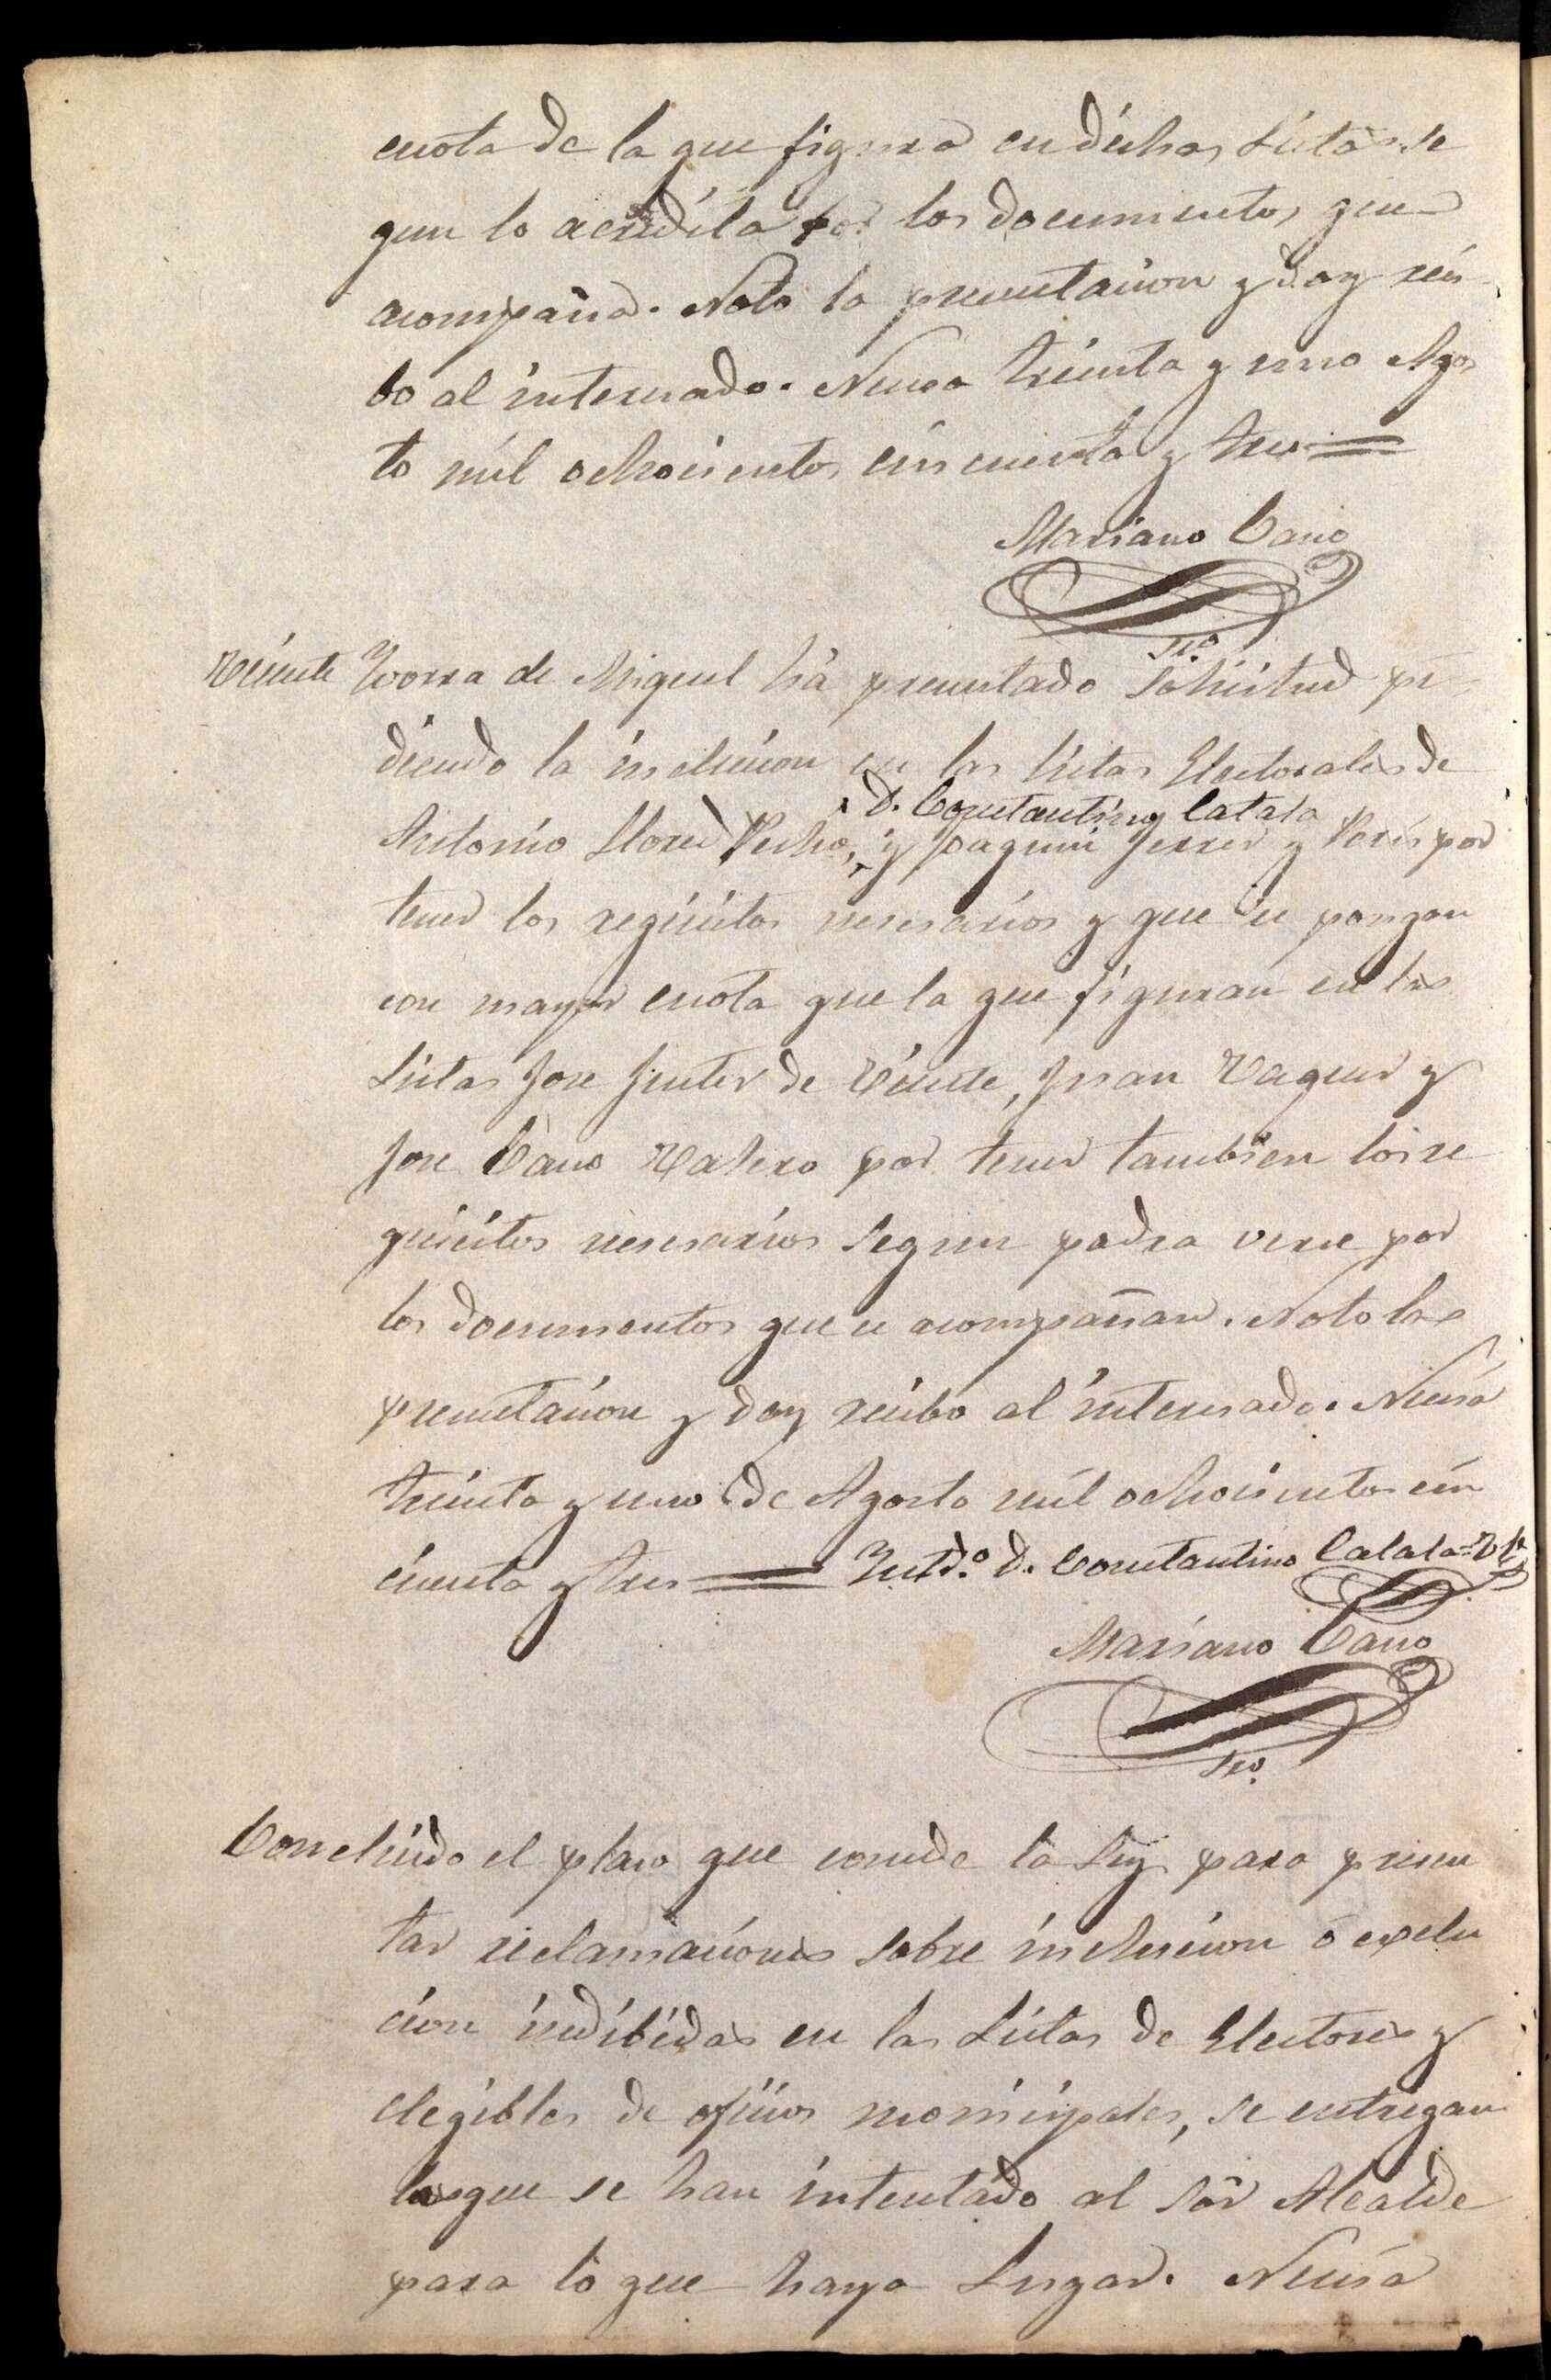 cuota de la que figura en dichas Listas se
gun lo acredita por los documentos que
acompaña. Noto la presentacion y doy reci-
bo al interesado. Nucia treinta y uno Agos
to mil ochocientos cincuenta y tres =
Mariano Cano
Srio.
Vicente Yvorra de Miguel há presentado solicitud pi-
diendo la inclucion en las listas Electorales de
D. Constantino Catala
Antonio Lloret Pecho, y Joaquin Ferrer y Peris por
tener los reqicitos necesarios y que se pongan
con mayor cuota que la que figuran en las
Listas Jose Fuster de Vicente, Juan Vaquer y
Jose Cano Valero por tener tambien los re
quicitos necesarios segun podra verse por
los documentos que se acompañan. Noto la
presentacion y doy recibo al interesado. Nucia
treinta y uno de Agosto mil ochocientos cin
cuenta y tres = Entdo. D. Constantino Catala =
Mariano Cano
Srio.
Concluido el plaso que concede la Ley para presen
tar reclamaciones sobre inclucion ó esclu
cion indibidas en las Listas de Electores y
elegibles de oficios monicipales, se entregan
las que se han intentado al Sor Alcalde
para lo que haya Lugar. Nucia